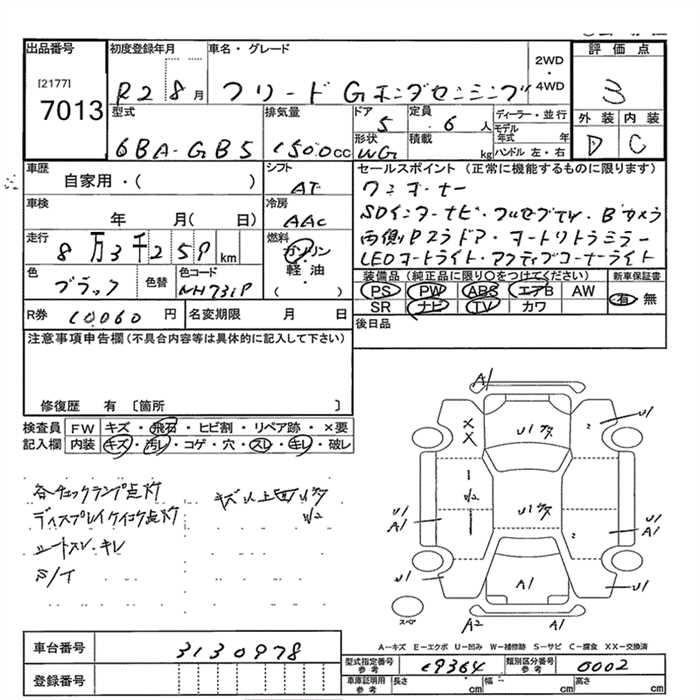 出品番号 初度登録年月 車名・グレード 2WD・4WD 評価点
[2177] 7013 R2 8月 フリード Gホンダセンシング 3
型式 排気量 ドア 5 定員 6人 ディーラー・並行 外装 内装
6BA-GB5 1500cc 形状 WG 積載 kg モデル年式 年 ハンドル 左・右 D C
車歴 シフト セールスポイント(正常に機能するものに限ります)
自家用・( ) AT ワンオーナー
車検 冷房 SDインターナビ・フルセグTV・Bカメラ
年 月( 日) AAC 両側Pスラドア・オートリトラミラー
走行 燃料 LEDオートライト・アクティブコーナーライト
8万3千259km ガソリン 軽油 ( )
色 色替 色コード 装備品(純正品に限り○をつけてください) 新車保証書
ブラック NH731P PS PW ABS エアB AW 有 無
SR ナビ TV カワ
R券 10060円 名変期限 月 日 後日品
注意事項申告欄(不具合内容等は具体的に記入して下さい)
修復歴 有 〔箇所 〕
検査員 FW キズ・飛石・ヒビ割・リペア跡・×要
記入欄 内装 キズ・汚レ・コゲ・穴・スレ・キレ・破レ
各チェックランプ点灯
ディスプレイケイコク点灯
シートスレ・キレ
A1
U1
X
X
U1
U1
A1
U1
U1
A1
U1
A1
U1
A2
A1
スペア
A-キズ E-エクボ U-凹み W-補修跡 S-サビ C-腐食 XX-交換済
車台番号 3130978
型式指定番号 参考 19364 類別区分番号 参考 0002
登録番号
車庫証明用 参考 長さ cm 幅 cm 高さ cm